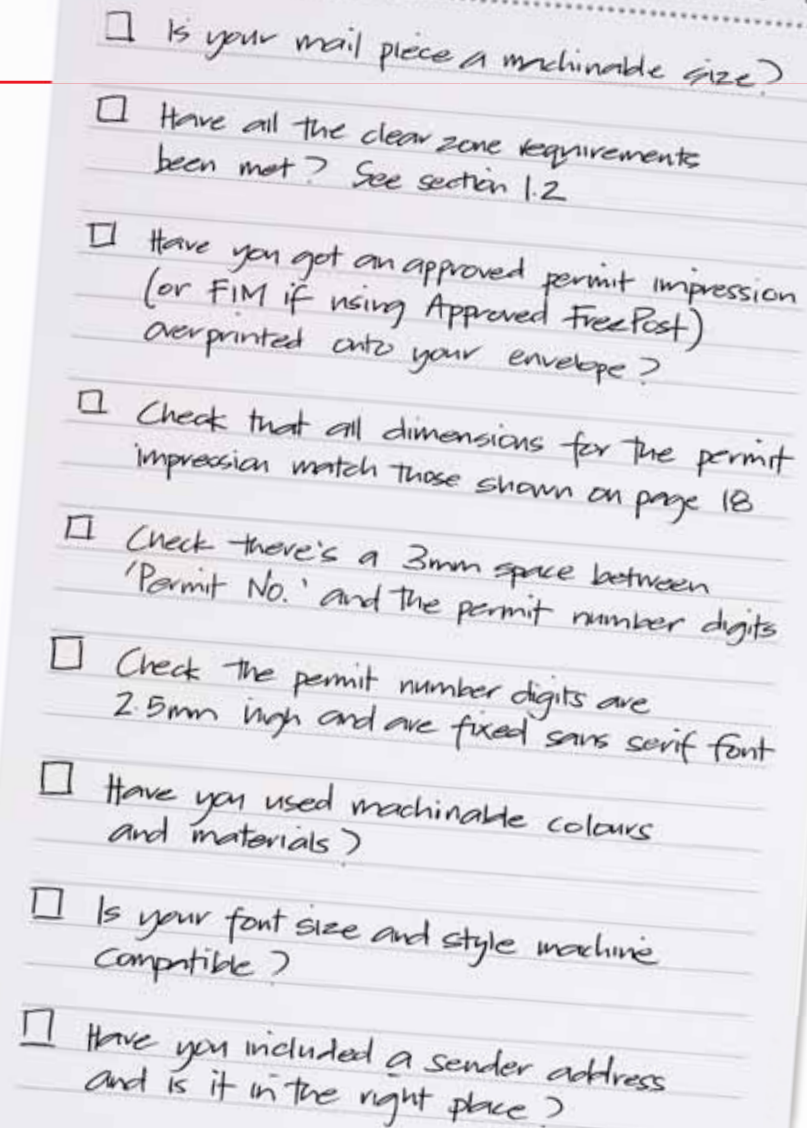 Is your mail piece a machinable size?
Have all the clear zone requirements
been met? See section 1.2
Have you got an approved permit impression
(or FIM if using Approved FreePost)
overprinted onto your envelope?
Check that all dimensions for the permit
impression match those shown on page 18
Check there's a 3mm space between
'Permit No.' and the permit number digits
Check the permit number digits are
2.5mm high and are fixed sans serif font
Have you used machinable colours
and materials?
Is your font size and style machine
compatible?
Have you included a sender address
and is it in the right place?